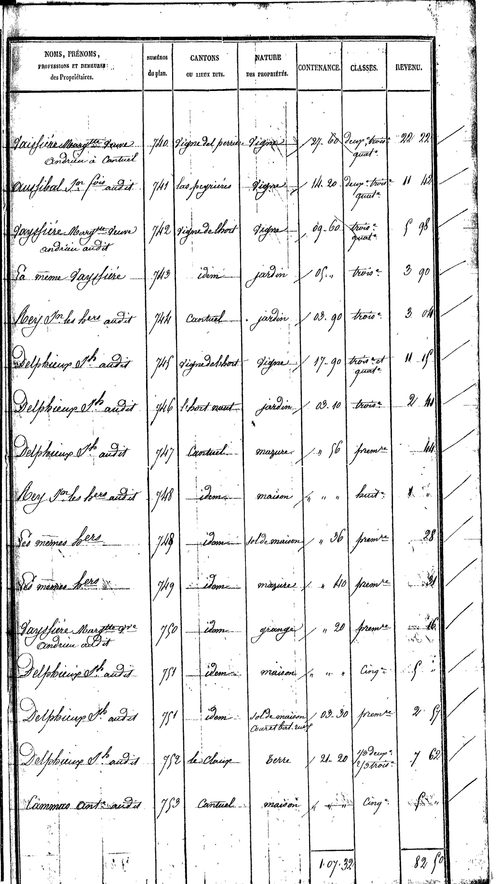 NOMS, PRÉNOMS, PROFESSIONS ET DEMEURES des Propriétaires. NUMÉROS du plan. CANTONS OU LIEUX DITS. NATURE DES PROPRIÉTÉS. CONTENANCE. CLASSES. REVENU.
Vayssière Margtte Veuve 740 Vigne del perrie Vigne 27. 60 deux. trois. 22 22
andrieu à Cantuel quat.
Jn fois audit 741 las peyrières Vigne 14. 20 deux. trois. 11 42
quat.
Vayssière Margtte Veuve 742 Vigne de lhort Vigne 09. 60 trois. 5 98
andrieu audit quat.
La même Vayssière 743 idem jardin 05 " trois. 3 90
Rey Jn les hers audit 744 Cantuel jardin 03. 90 trois. 3 04
Delphieux Jh audit 745 Vigne de lhort Vigne 17. 90 trois. et 11 15
quat.
Delphieux Jh audit 746 l'hort naut jardin 03. 10 trois. 2 41
Delphieux Jh audit 747 Cantuel mazure " 56 premre 44
Rey Jn les hers audit 748 idem maison " " " huit. "
Les mêmes hers 748 idem sol de maison " 36 premre 28
Les mêmes hers 749 idem mazure " 40 premre 31
Vayssière Margtte Vve 750 idem grange " 20 premre 16
andrieu audit
Delphieux Jh audit 751 idem maison " " " Cinq. 5 "
Delphieux Jh audit 751 idem sol de maison 03. 30 premre 2 57
Delphieux Jh audit 752 le Claux Terre 21. 20 1/3 deux. 7 62
2/3 trois.
Cammas Ant. audit 753 Cantuel maison " " " Cinq. 5 "
1. 07. 32 82 50